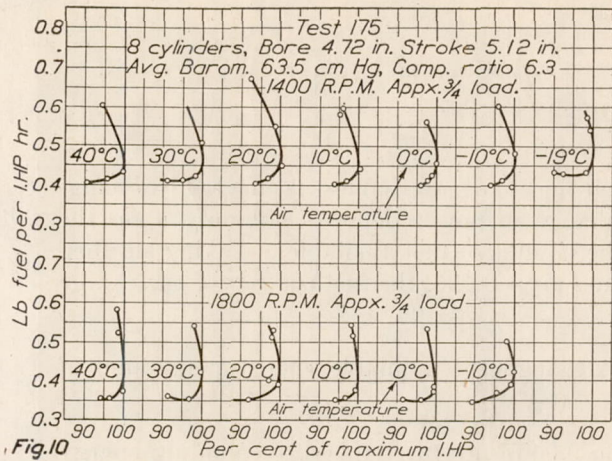 Test 175
8 cylinders, Bore 4.72 in. Stroke 5.12 in.
Avg. Barom. 63.5 cm Hg, Comp. ratio 6.3
1400 R.P.M. Appx. 3/4 load.
0.8
0.7
0.6
0.5
0.4
0.3
0.6
0.5
0.4
0.3
Lb fuel per I.HP hr.
40°C 30°C 20°C 10°C 0°C -10°C -19°C
Air temperature
1800 R.P.M. Appx. 3/4 load
40°C 30°C 20°C 10°C 0°C -10°C
Air temperature
90 100 90 100 90 100 90 100 90 100 90 100 90 100
Fig.10
Per cent of maximum I.HP